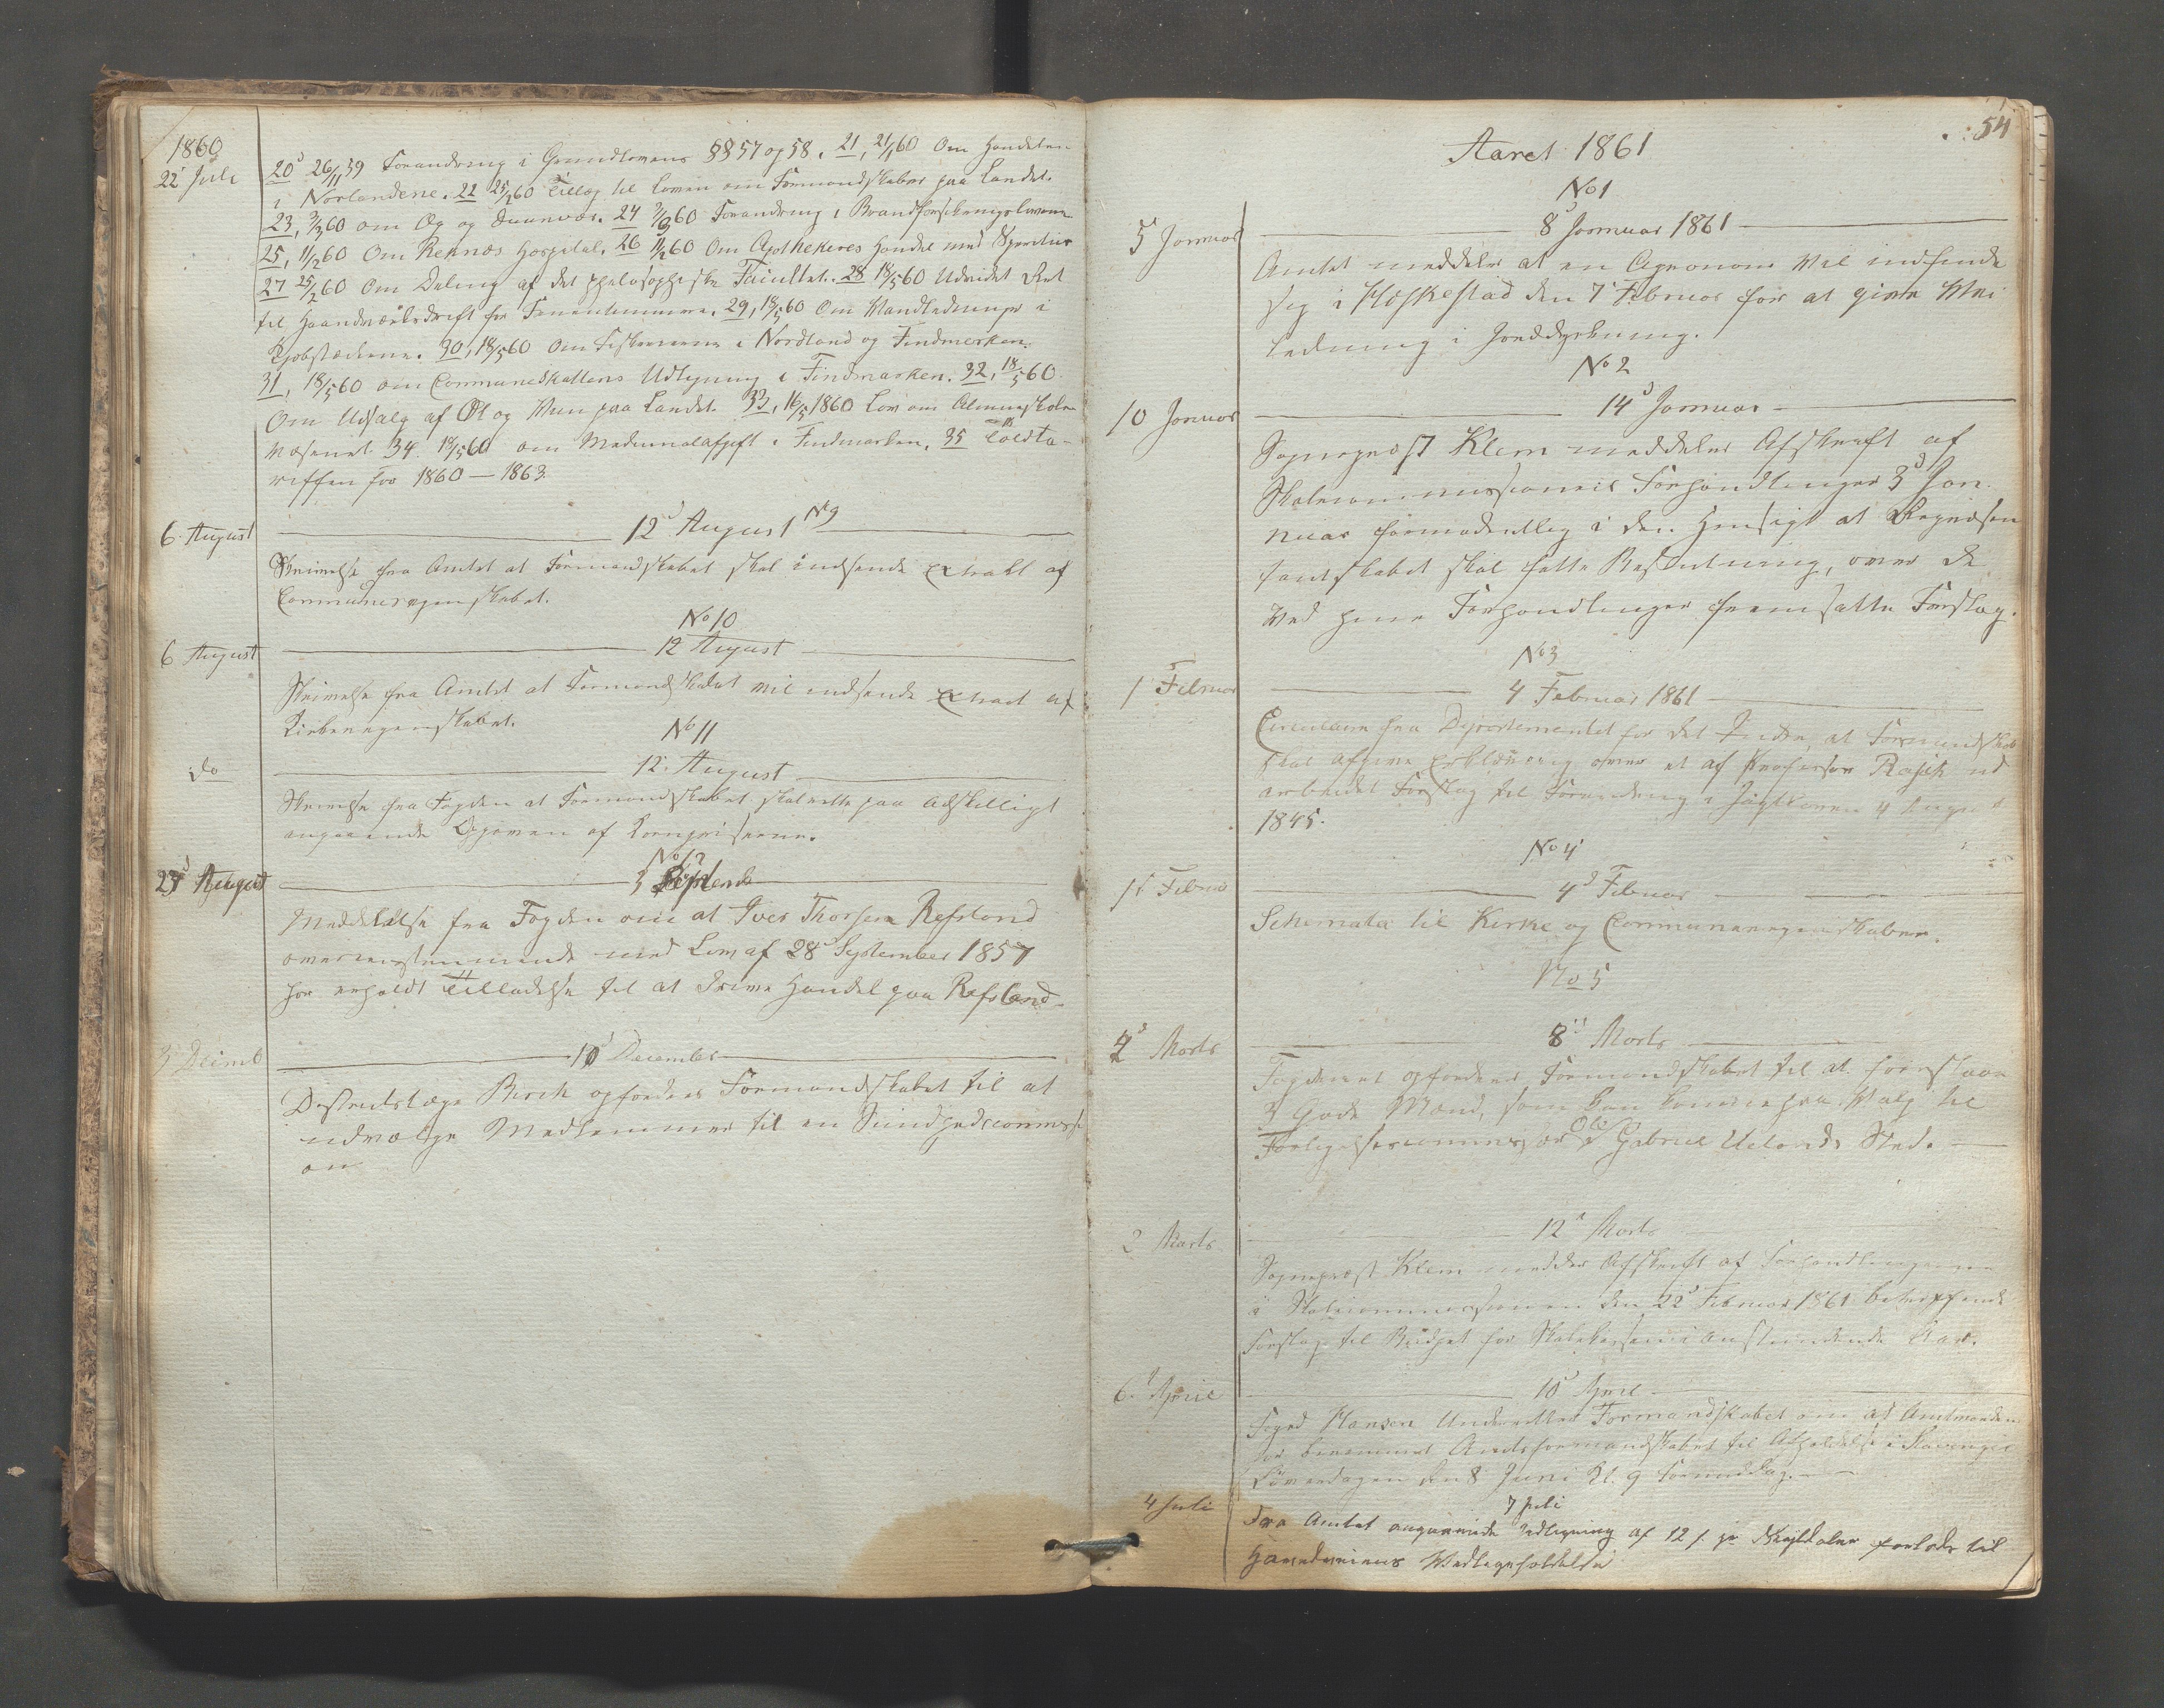 1860
22 Juli
20 26/11 59 Forandring i Grundlovens §§ 57 og 58. 21, 21/1 60 Om Handelen
i Norlandene. 22 25/1 60 Tillæg til Loven om Formandskaber paa Landet.
23, 3/3 60 om Æg og Duunvær. 24 60 Forandring i Brandforsikringslovene
25, 11/2 60 Om Reknæs Hospital. 26 11/2 60 Om Apothekeres Handel med Spiritus
27 25/2 60 Om Deling af det philosophiske Facultet. 28 18/5 60 Udvidet Ret
til Haandværksdrift for Fruentimmere. 29, 18/5 60 Om Vandledninger i
Kjøbstæderne. 30, 18/5 60 Om Fiskerierne i Nordland og Findmarken.
31, 18/5 60 om Communeskattens Udligning i Findmarken. 32, 18/5 60
Om Udsalg af Øl og Viin paa Landet. 33, 16/5 1860 Lov om Almueskole
væsenet. 34. 18/5 60 om Medicinalafgift i Findmarken. 35 Toldta-
riffen for 1860 — 1863.
No 9
6 August
12 August
Skrivelse fra Amtet at Formandskabet skal indsende Extrakt af
Communeregnskabet.
No 10
6 August
12 August
Skrivelse fra Amtet at Formandskabet vil indsende Extract af
Kirkeregnskabet.
No 11
do
12 August
Skrivelse fra Fogden at Formandskabet skal rette paa Adskilligt
angaaende Opgaven af Kornpriserne.
No 12
August
3
Meddelelse fra Fogden om at Iver Thorsen Refsland
overeensstemmende med Lov af 28 September 1857
har erholdt Tilladelse til at drive Handel paa Refsland.
3 Decemb
10 December
Districtslæge Birch opfordrer Formandskabet til at
udvælge Medlemmer til en Sundhedscommissi
on
54
Aaret 1861
No 1
5 Januar
8 Januar 1861
Amtet meddeler at en Agronom vil indfinde
sig i Hæskestad den 7 Februar for at give Vei
ledning i Jorddyrkning.
No 2
10 Januar
14 Januar
Sognepræst Klem meddeler Afskrift af
Skolecommissionens Forhandlinger 3 Jan
nuar formodentlig i den Hensigt at Repræsen
tantskabet skal fatte Beslutning, over de
ved hine Forhandlinger fremsatte Forslag.
No 3
1 Februar
4 Februar 1861
Circulaire fra Departementet for det Indre, at Formandskab
skal afgive Erklæring over et af Professor Rasch ud
arbeidet Forslag til Forandring i Jagtloven 4 August
1845.
No 4
Februar
4 Februar
Schemata til Kirke og Communeregnskaber.
No 5
2 Marts
8 Marts
Fogderiet opfordrer Formandskabet til at foreslaae
3 Gode Mænd, som kan komme paa Valg til
Forligelsescommissær Ole Gabriel Uelands Sted.
2 Marts
12 Marts
Sognepræst Klem meddeler Afskrift af Forhandlingerne
i Skolecommissionen den 22 Februar 1861 betreffende
Forslag til Budget for Skolekassen i anstundende Aar.
6 April
10 April
Foged Hansen underretter Formandskabet om at Amtmanden
har berammet Amtsformandskabet til Afholdelse i Stavanger
Løverdagen den 8 Juni Kl. 9 Formiddag.
4 Juli
7 Juli
Fra Amtet angaaende Udligning af 12 s. pr Skyldaler til
Havnevæsenets Vedligeholdelse